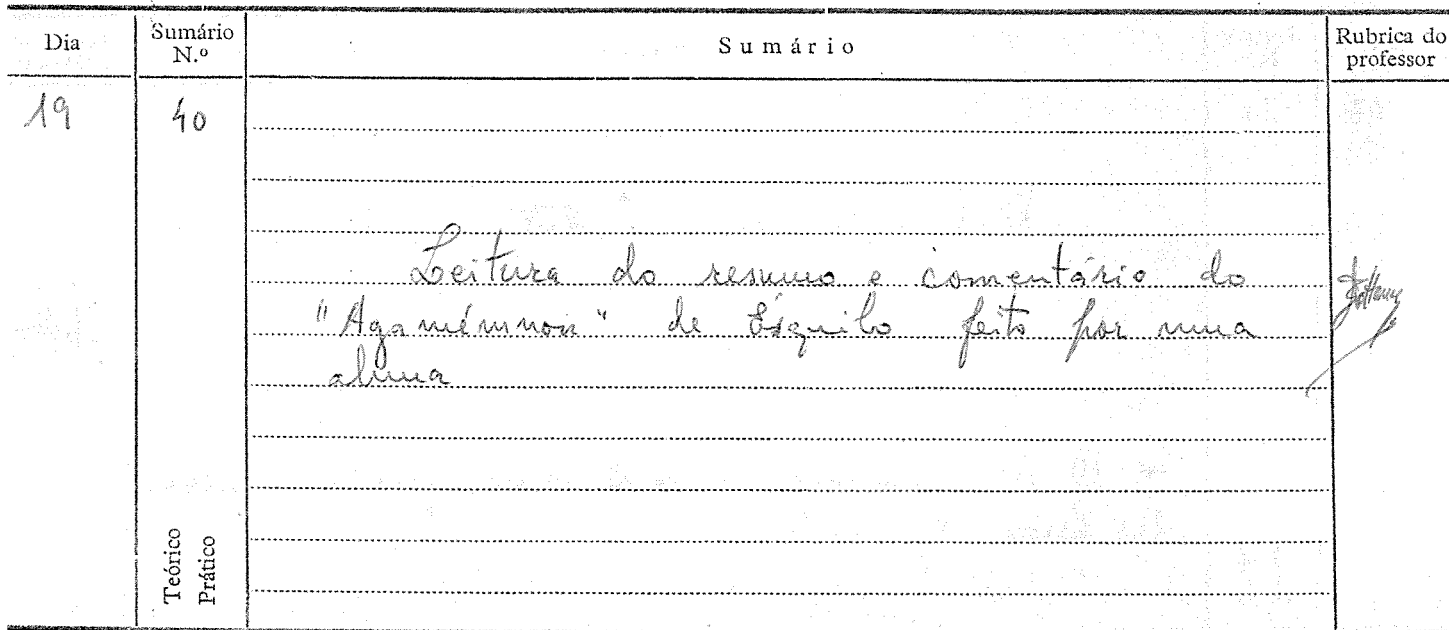 Dia
Sumário
N.º
Sumário
Rubrica do
professor
19
40
Leitura do resumo e comentário do
"Agamémnon" de Ésquilo feito por uma
aluna
Teórico
Prático